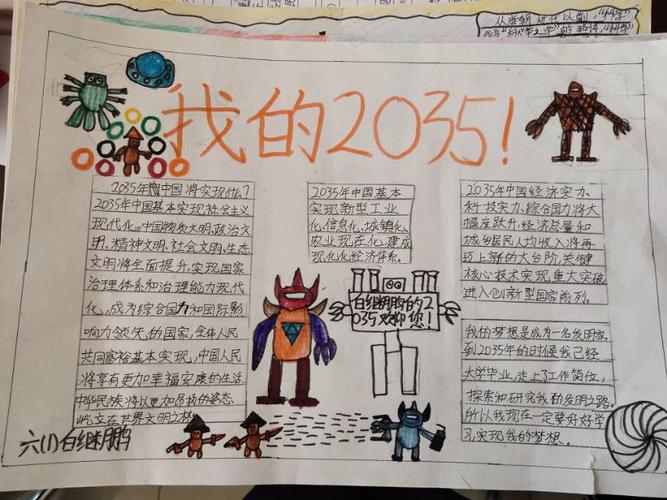 我的2035!
2035年中国将实现什么?
2035年中国基本实现社会主义
现代化。中国物质文明、政治文
明、精神文明、社会文明、生态
文明将全面提升,实现国家
治理体系和治理能力现代
化,成为综合国力和国际影
响力领先的国家,全体人民
共同富裕基本实现,中国人民
将享有更加幸福安康的生活
中华民族将以更加昂扬的姿态
屹立在世界文明之林
2035年中国基本
实现新型工业
化、信息化、城镇化、
农业现在化,建成
现化化经济体系。
白继鹏的2
035欢迎您!
2035年中国经济实力、
科技实力、综合国力将大
幅度跃升,经济总量和
城乡居民人均收入将再
迈上新的大台阶,关键
核心技术实现重大突破,
进入创新型国家前列。
我的梦想是成为一名发明家。
到2035年的时候我已经
大学毕业,走上了工作岗位,
探索和研究我的发明之路。
所以我现在一定要好好学
习,实现我的梦想。
六(1)白继鹏